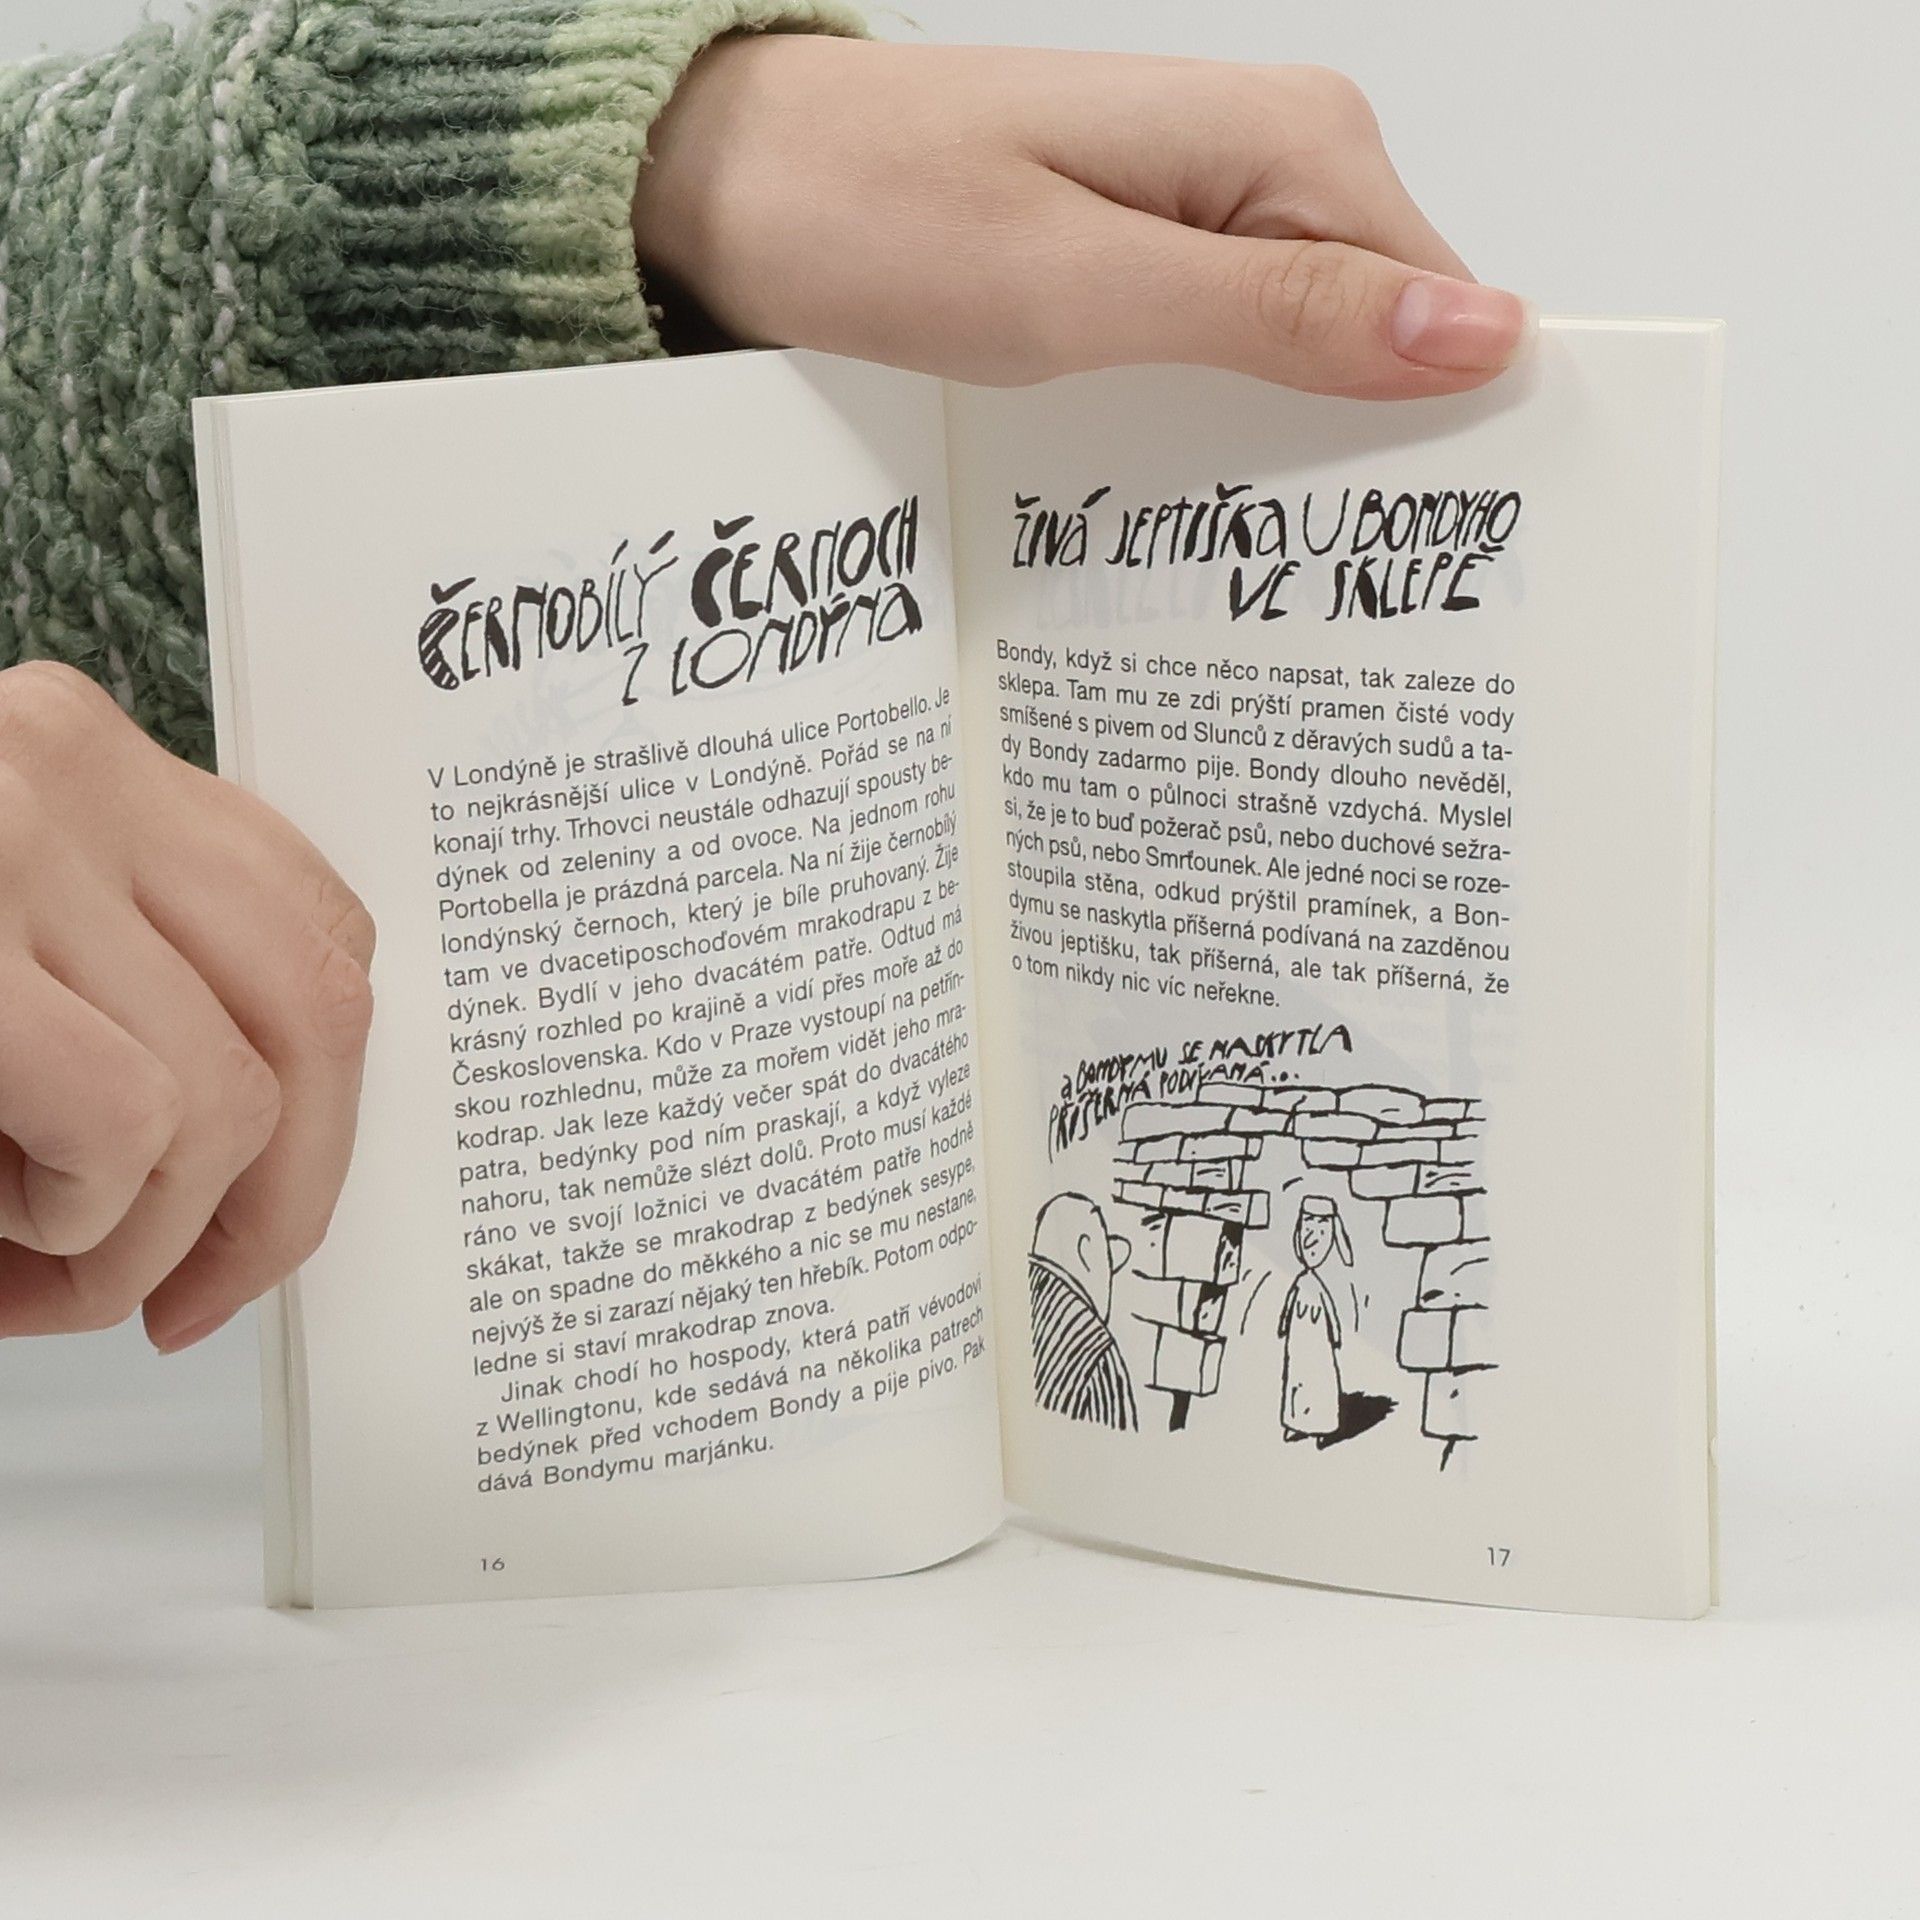 ČERNOBÍLÝ ČERNOCH
Z LONDÝNA
V Londýně je strašlivě dlouhá ulice Portobello. Je
to nejkrásnější ulice v Londýně. Pořád se na ní
konají trhy. Trhovci neustále odhazují spousty be-
dýnek od zeleniny a od ovoce. Na jednom rohu
Portobella je prázdná parcela. Na ní žije černobílý
londýnský černoch, který je bíle pruhovaný. Žije
tam ve dvacetiposchoďovém mrakodrapu z be-
dýnek. Bydlí v jeho dvacátém patře. Odtud má
krásný rozhled po krajině a vidí přes moře až do
Československa. Kdo v Praze vystoupí na petřín-
skou rozhlednu, může za mořem vidět jeho mra-
kodrap. Jak leze každý večer spát do dvacátého
patra, bedýnky pod ním praskají, a když vyleze
nahoru, tak nemůže slézt dolů. Proto musí každé
ráno ve svojí ložnici ve dvacátém patře hodně
skákat, takže se mrakodrap z bedýnek sesype,
ale on spadne do měkkého a nic se mu nestane,
nejvýš že si zarazí nějaký ten hřebík. Potom odpo-
ledne si staví mrakodrap znova.
Jinak chodí ho hospody, která patří vévodovi
z Wellingtonu, kde sedává na několika patrech
bedýnek před vchodem Bondy a pije pivo. Pak
dává Bondymu marjánku.
16
ŽIVÁ JEPTIŠKA U BONDYHO
VE SKLEPĚ
Bondy, když si chce něco napsat, tak zaleze do
sklepa. Tam mu ze zdi prýští pramen čisté vody
smíšené s pivem od Slunců z děravých sudů a ta-
dy Bondy zadarmo pije. Bondy dlouho nevěděl,
kdo mu tam o půlnoci strašně vzdychá. Myslel
si, že je to buď požerač psů, nebo duchové sežra-
ných psů, nebo Smrťounek. Ale jedné noci se roze-
stoupila stěna, odkud prýštil pramínek, a Bon-
dymu se naskytla příšerná podívaná na zazděnou
živou jeptišku, tak příšerná, ale tak příšerná, že
o tom nikdy nic víc neřekne.
a BONDYMU SE NASKYTLA
PŘÍŠERNÁ PODÍVANÁ...
17